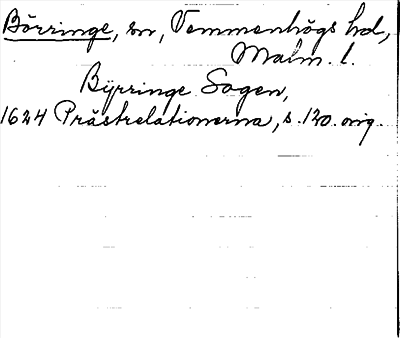 Börringe, sn, Vemmenhögs hd,
Malm. l.
Byrringe Sogen,
1624 Prästrelationerna, s. 120. orig.